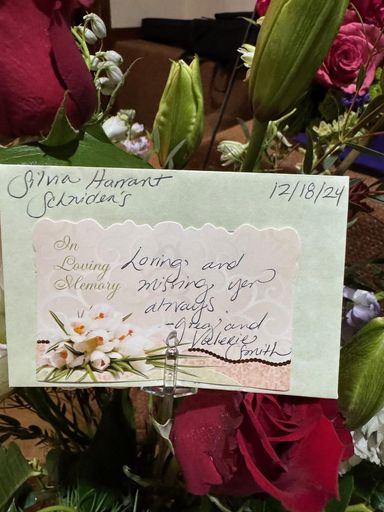 Silvia Harrant 12/18/24
Schriden's
In
Loving
Memory
Loving and
missing you
always.
-Greg and
Valerie
Smith